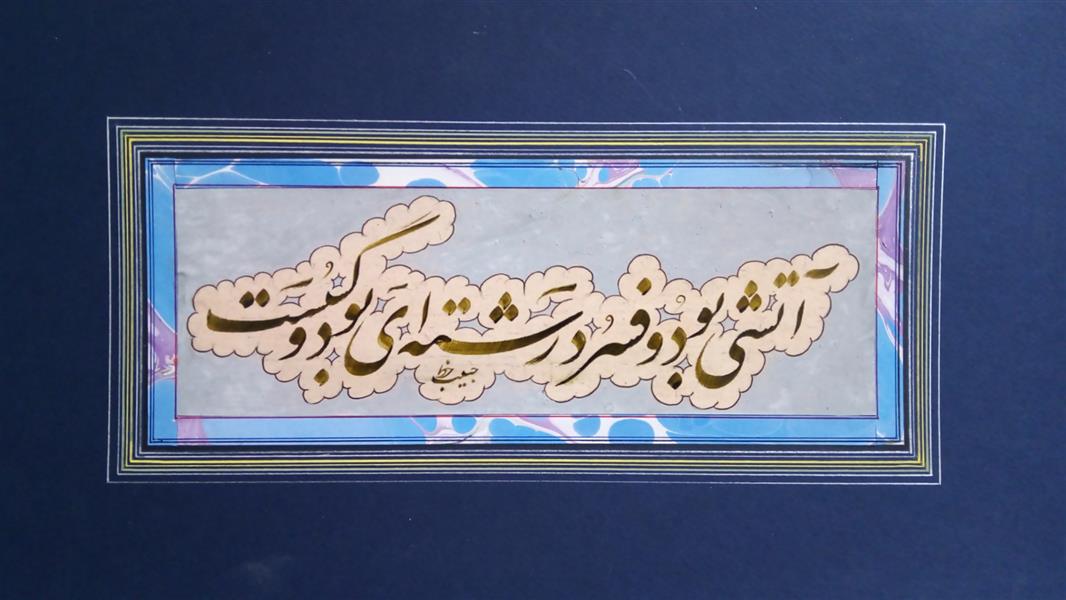 آتشی بود و فسرد رشته‌ای بود و گسست
حبیب خط